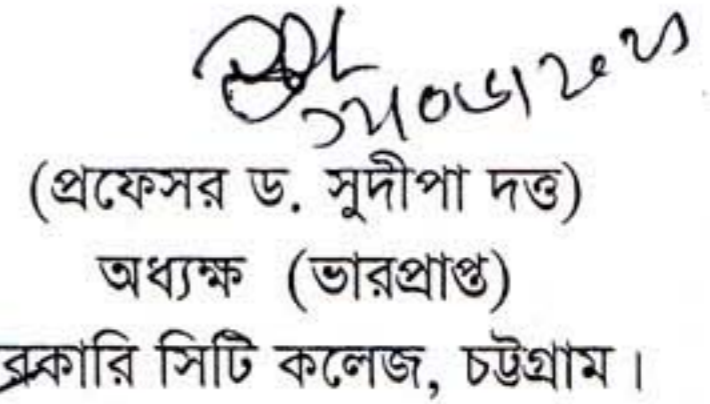 (প্রফেসর ড. সুদীপা দত্ত)
অধ্যক্ষ (ভারপ্রাপ্ত)
রকারি সিটি কলেজ, চট্টগ্রাম।